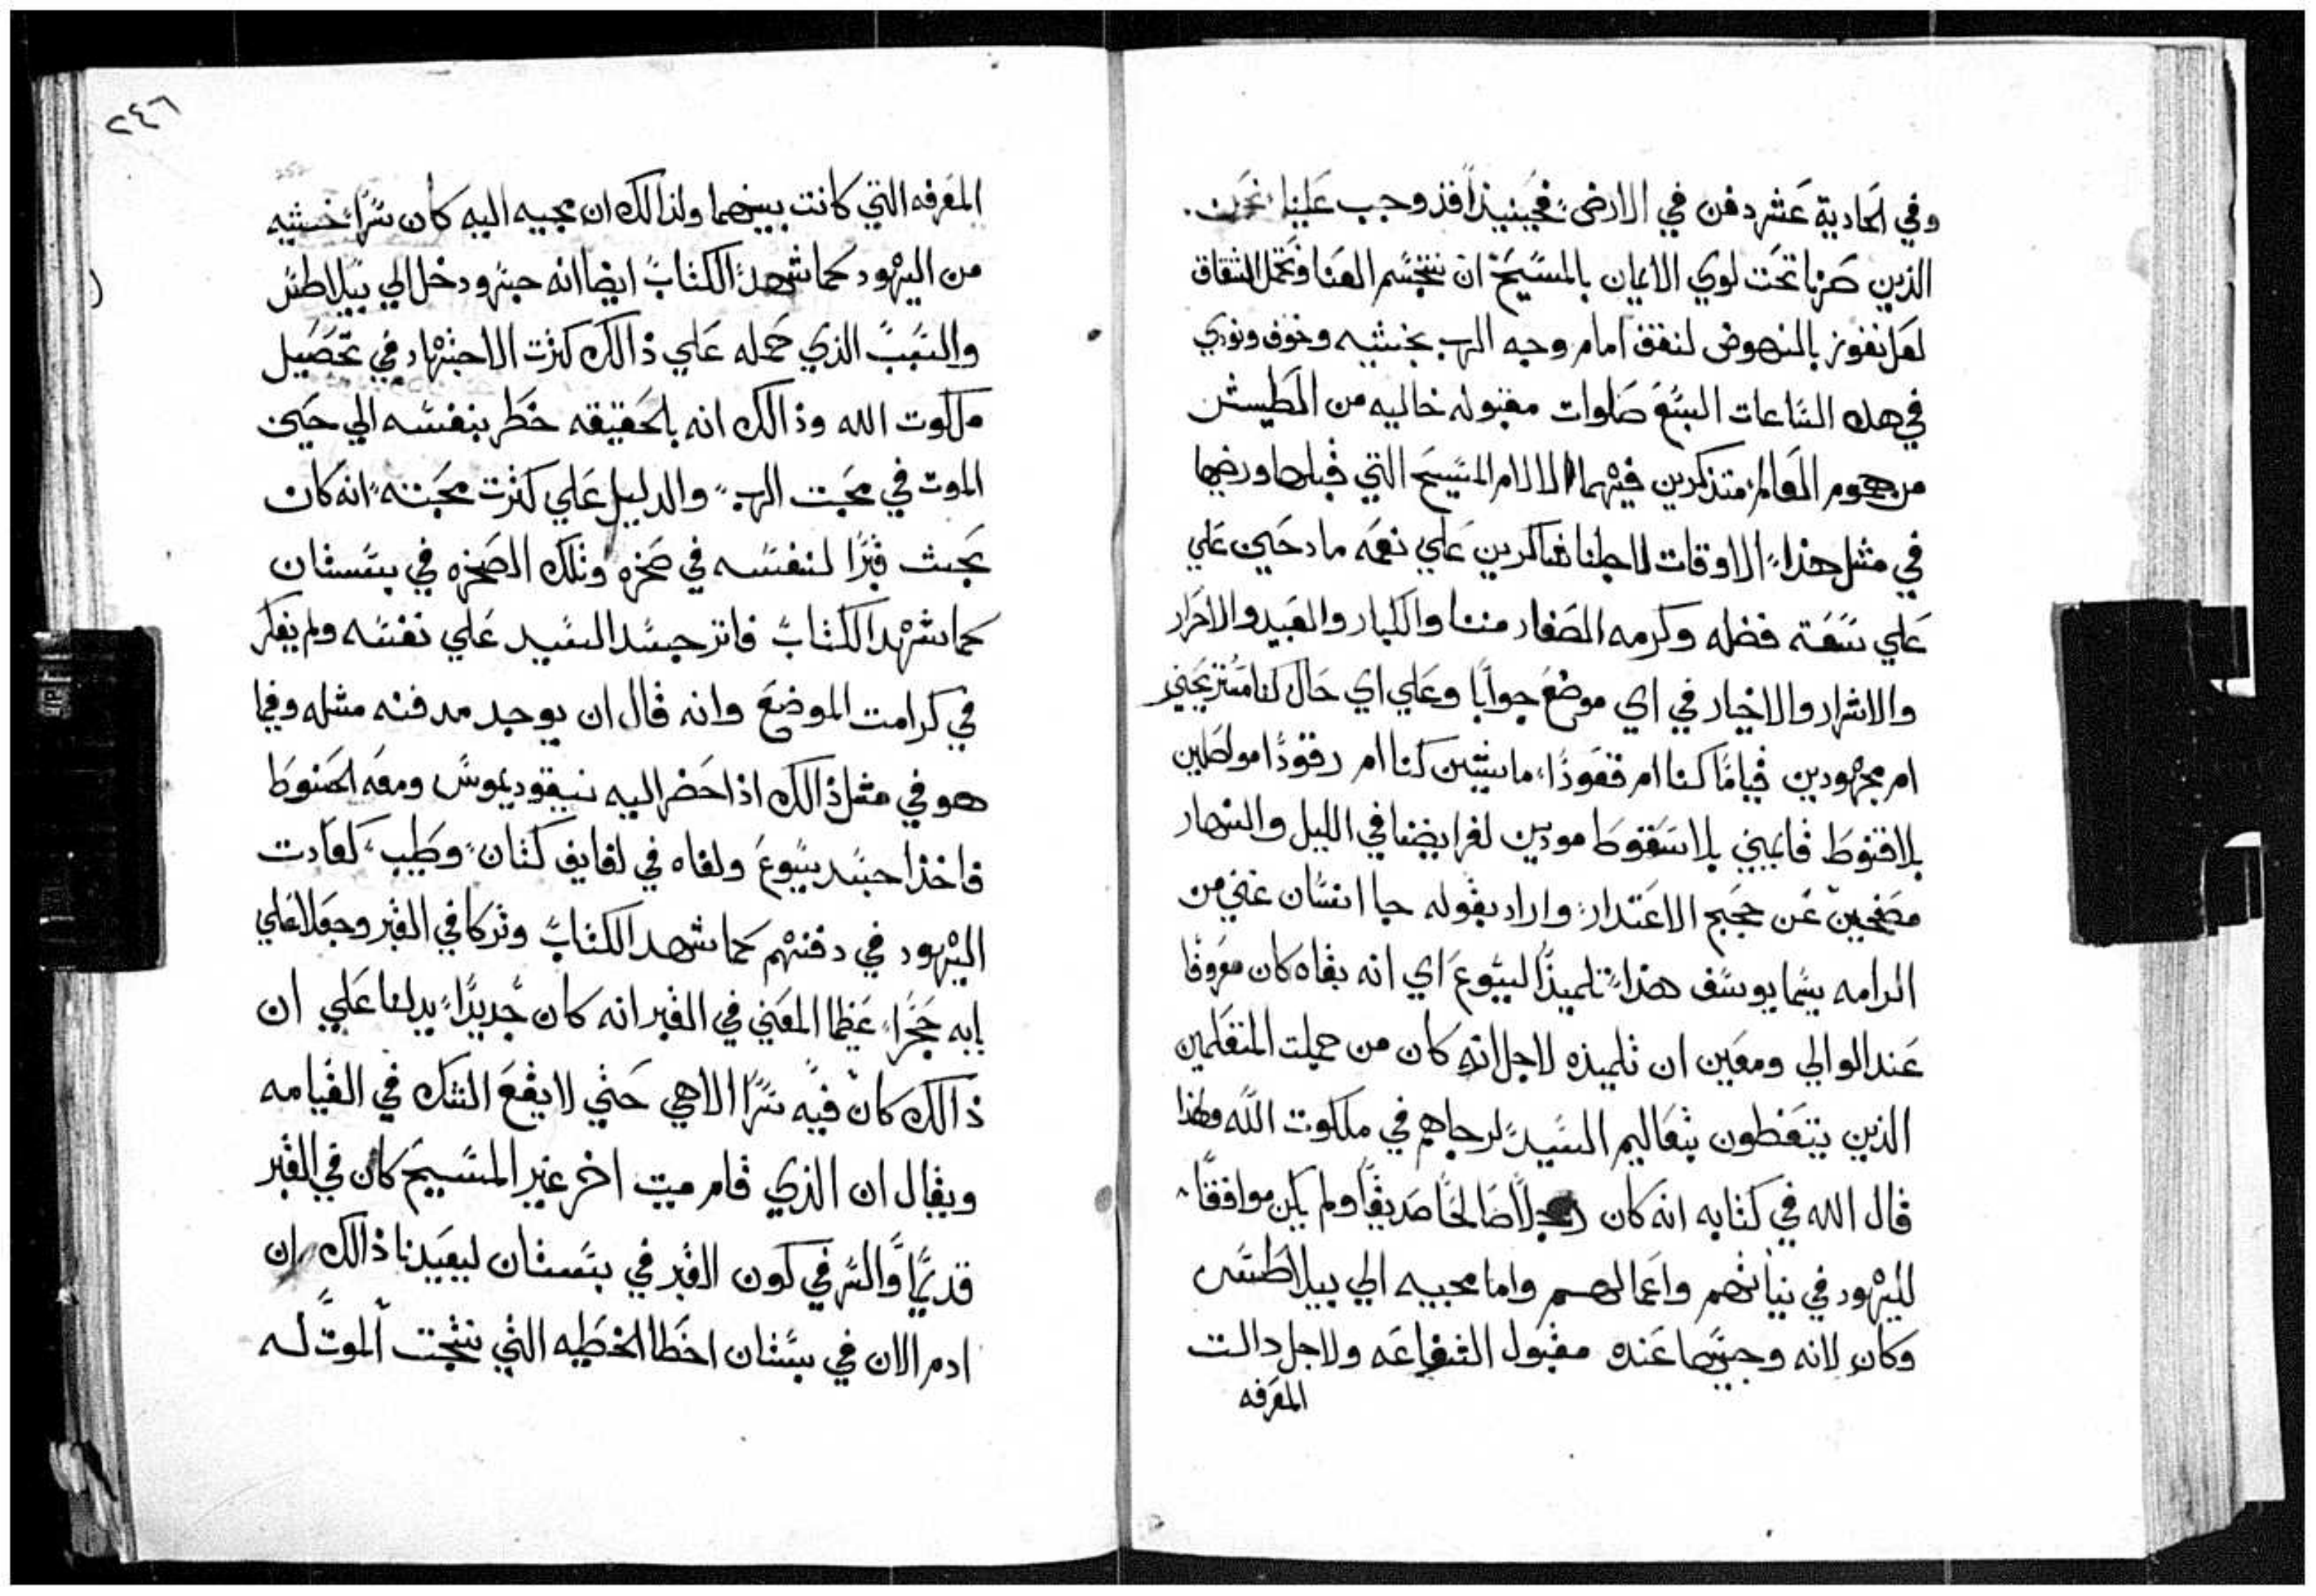 وفي الحادية عشر دفن في الارض فحينيذاً قد وجب علينا نحن
الذين صرنا تحت لوي الايمان بالمسيح ان نتجسم العنا ونتحمل المشقات
لعل نفوز بالنهوض لنقف امام وجه الرب بخشيه وخوف ونودي
في هده الساعات السبع صلوات مقبوله خاليه من الطيش
من هموم العالم متذكرين فيهما الالام المسيح التي قبلها ورضيها
في مثل هذا الاوقات لاجلنا شاكرين علي نعمه مادحين علي
علي سعة فضله وكرمه الصغار مننا والكبار والعبيد والاحرار
والاشرار والاخيار في اي موضع جوابا وعلي اي حال كنا مستريحين
ام مجهودين قياما كنا ام قعودا ماشيين كنا ام رقودا مواظبين
بلا قنوط قايمين بلا سقوط مودين لفرايضنا في الليل والنهار
عن حجج الاعتدار واراد بقوله جا انسان غني من
الرامه يسما يوسف هذا تلميذا ليسوع اي انه بقاه كان معروفا
عند الوالي ومعين ان تلميذه لاجل انه كان من جملت المتعلمين
الذين يتعظون بتعاليم السيد لرجاهم في ملكوت الله ولهذا
قال الله في كتابه انه كان رجلا صالحا صديقا ولم يكن موافقا
لليهود في نياتهم واعمالهم واما مجييه الي بيلاطس
وكان لانه وجيها عنده مقبول الشفاعه ولاجل دالت
المعرفه
٢٤٦
المعرفه التي كانت بينهما ولذالك ان مجيه اليه كان سرا خشيه
من اليهود كما شهد الكتاب ايضا انه جسر ودخل الي بيلاطس
والسبب الذي حمله علي ذالك كثرت الاجتهاد في تحصيل
ملكوت الله وذالك انه بالحقيقه خطر بنفسه الي حين
الموت في محبت الرب والدليل علي كثرت محبته انه كان
نحت قبرا لنفسه في صخره وتلك الصخره في بستان
كما شهد الكتاب فاثر جسد السيد علي نفسه ولم يفكر
في كرامت الموضع وانه قال ان يوجد مدفنه مثله وفيما
هو في مثل ذالك اذا حضر اليه نيقوديموس ومعه الحنوط
فاخذا جسد يسوع ولفاه في لفايف كتان وطيب كعادت
اليهود في دفنهم كما شهد الكتاب وتركا في القبر وجعلا علي
بابه حجرا عظيما المعني في القبر انه كان جديدا يدلنا علي ان
ذالك كان فيه سرا الاهي حتي لا يقع الشك في القيامه
ويقال ان الذي قام ميت اخر غير المسيح كان في القبر
قديما والسر في كون القبر في بستان ليعيدنا ذالك ان
ادم الان في بستان اخطا الخطيه التي نتجت الموت له